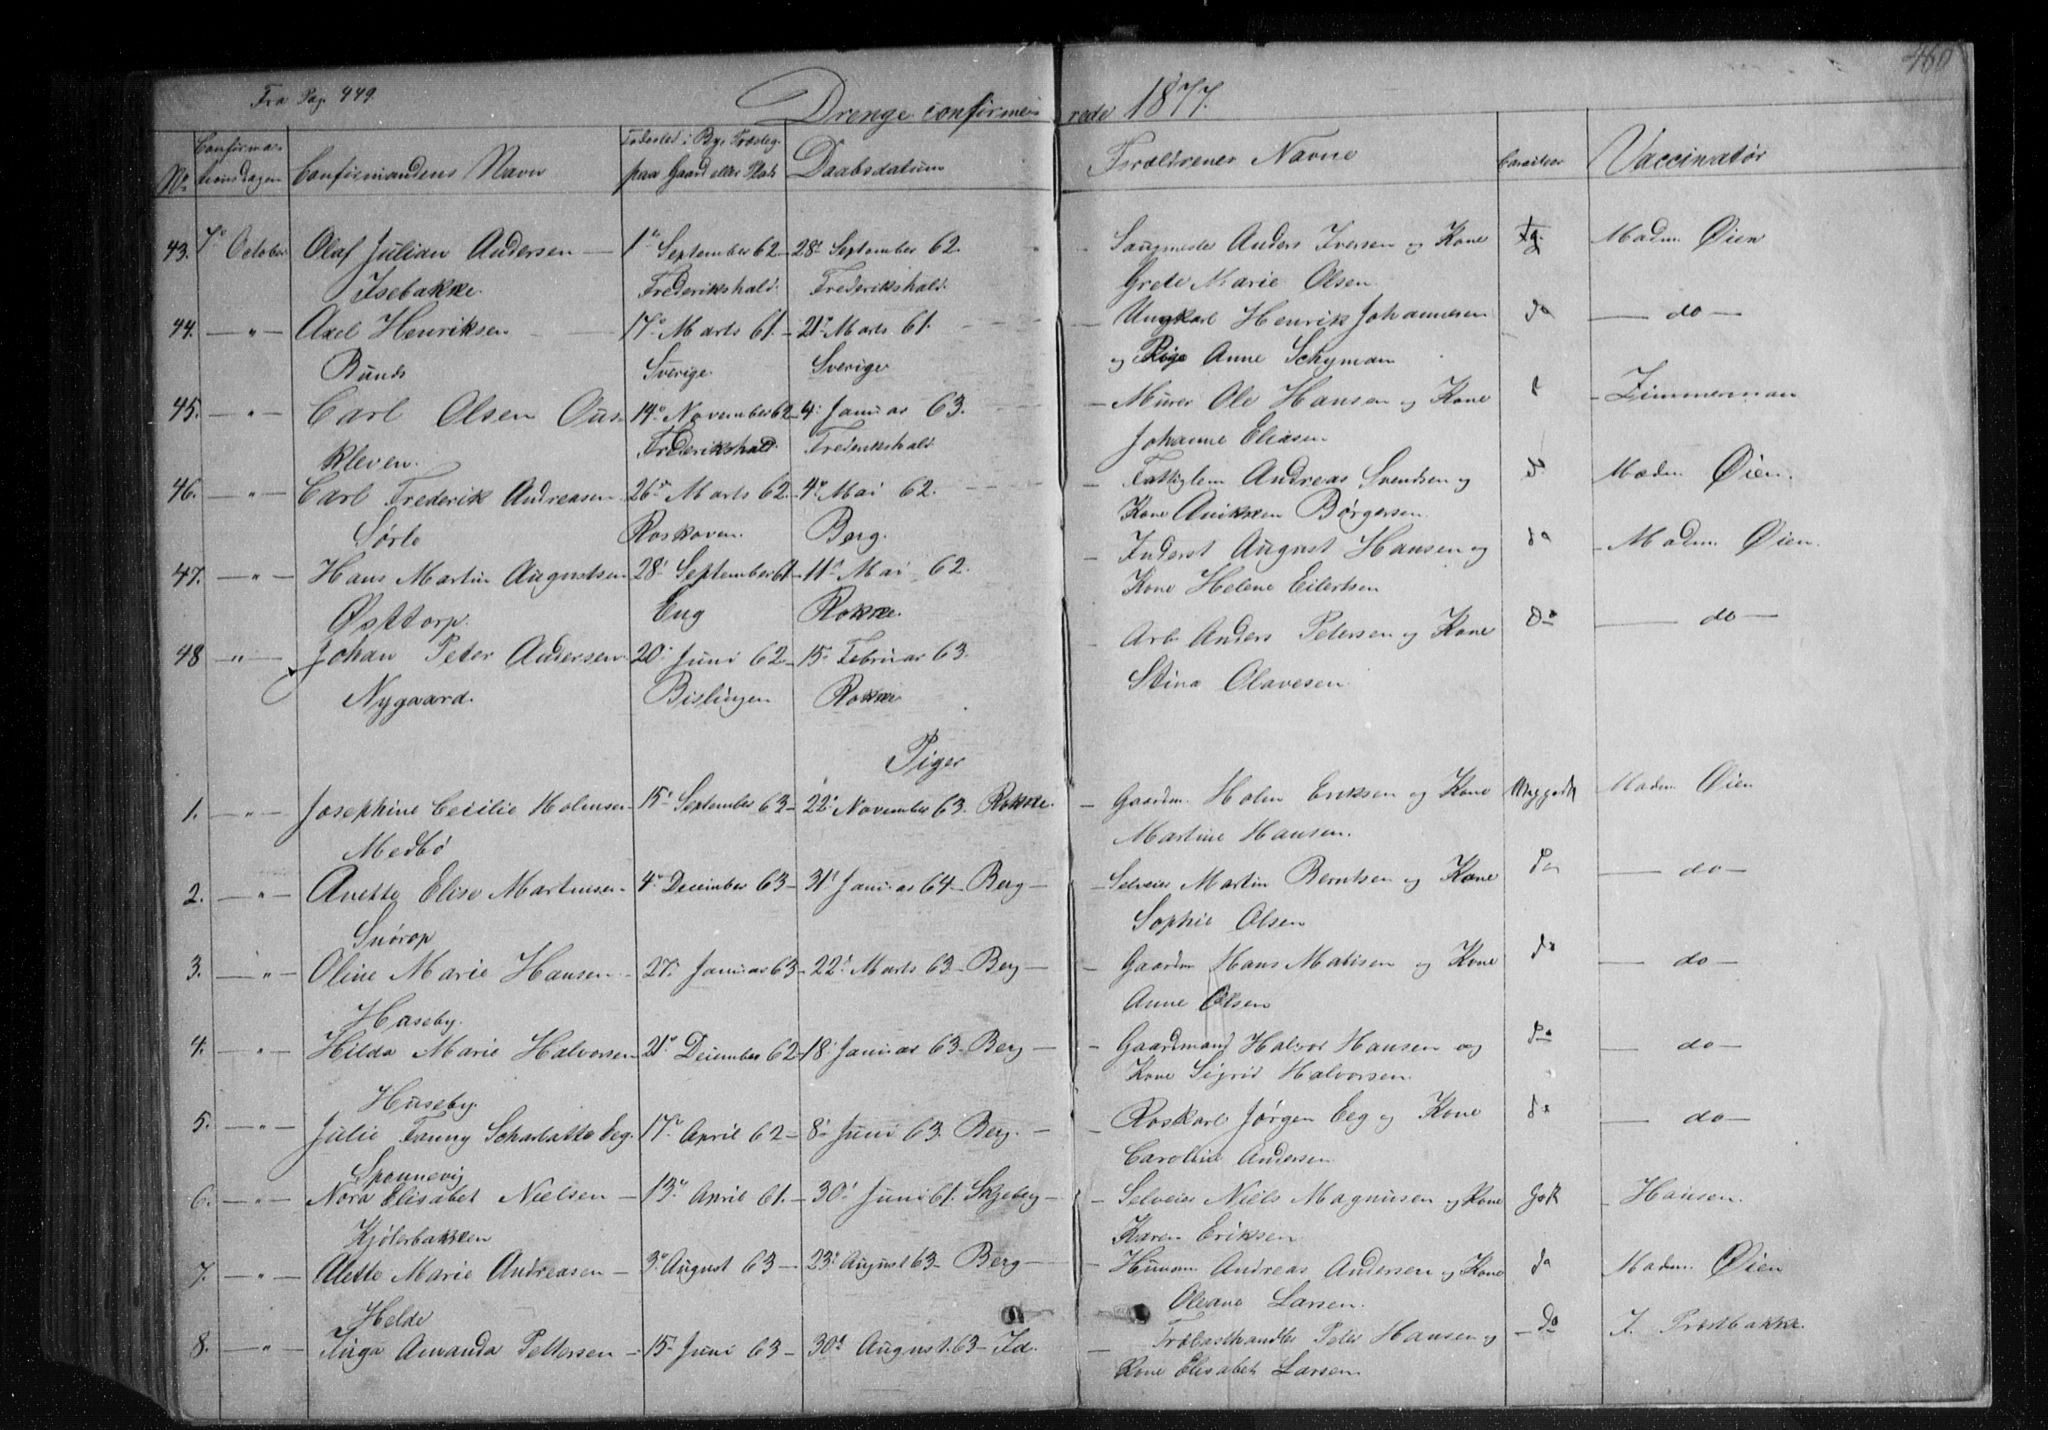 460
Fra Pag. 449.
Drenge confirmerede 1877.
No Confirmationsdagen Confirmandens Navn Fødested i By, Præsteg. paa Gaard eller Plads Daabsdatum Forældrenes Navne Caracteer Vaccinatør
43. 7de October Olaf Julian Andersen — 1ste September 62 — 28de September 62. Saugmester Anders Iversen og Kone tg. Madm. Øien
Isebakke. Frederikshald. Frederikshald. Grete Marie Olsen.
44. — " — Axel Henriksen 17de Marts 61. — 21de Marts 61. — Ungkarl Henrik Johannesen do — do —
Bunds Sverige. Sverige og Pige Anne Schyman
45. — " — Carl Olsen Ous- 14de November 62 — 4de Januar 63. — Murer Ole Hansen og Kone — Zimmerman
kleven. Frederikshald. Frederikshald. Johanne Eliasen
46. — " — Carl Frederik Andreasen 26de Marts 62. 4de Mai 62. Fattiglem Andreas Svendsen og Madm. Øien.
Sørle Roskoven. Berg. Kone Anikken Børgersen.
47. — " — Hans Martin Augustsen 28de September 61 — 11te Mai 62. — Inderst August Hansen og do — Madm. Øien.
Østtorp. Eng Rokke. Kone Helene Eilertsen
48 — " — Johan Peter Andersen. 20de Juni 62 — 15de Februar 63. — Arb. Anders Petersen og Kone do — do —
Nygaard. Bislingen Rokke Stina Olavesen
Piger
1. — " — Josephine Cecilie Holmsen 15de September 63 — 22de November 63. Rokke. — Gaardm. Holm Eriksen og Kone Meg. godt Madm. Øien
Medbø Martine Hansen.
2. — " — Anette Elise Martinsen 4de December 63 — 31te Januar 64 — Berg — — Selveier Martin Berntsen og Kone do — do —
Snørop Sophie Olsen
3. — " — Oline Marie Hansen — 27. Januar 63 — 22de Marts 63 — Berg — — Gaardm Hans Matisen og Kone do — do —
Haseby. Anne Olsen
4. — " — Hilda Marie Halvorsen 21de December 62 — 18de Januar 63 — Berg — — Gaardmand Halvor Hansen og do — do —
Huseby. Kone Sigrid Halvorsen.
5. — " — Julie Fanny Scharlotte Eeg. 17de April 62 — 8de Juni 63. Berg. — — Roskarl Jørgen Eeg og Kone do — do —
Sponnevig Caroline Andersen
6. — " — Nora Elisabet Nielsen — 13de April 61. — 30te Juni 61. Skjeberg — — Selveier Niels Magnusen og Kone godt — Hansen.
Kjølerbakken Karen Eriksen
7. — " — Alette Marie Andreasen — 3de August 63 — 23de August 63 — Berg — — Huusm. Andreas Andersen og Kone do Madm. Øien
Helde Oleane Larsen.
8. — " — Inga Amanda Pettersen — 15de Juni 63 — 30te August 63 — Id. — Trælasthandler Peter Hansen og — do I. Prestbakke.
Kone Elisabet Larsen.